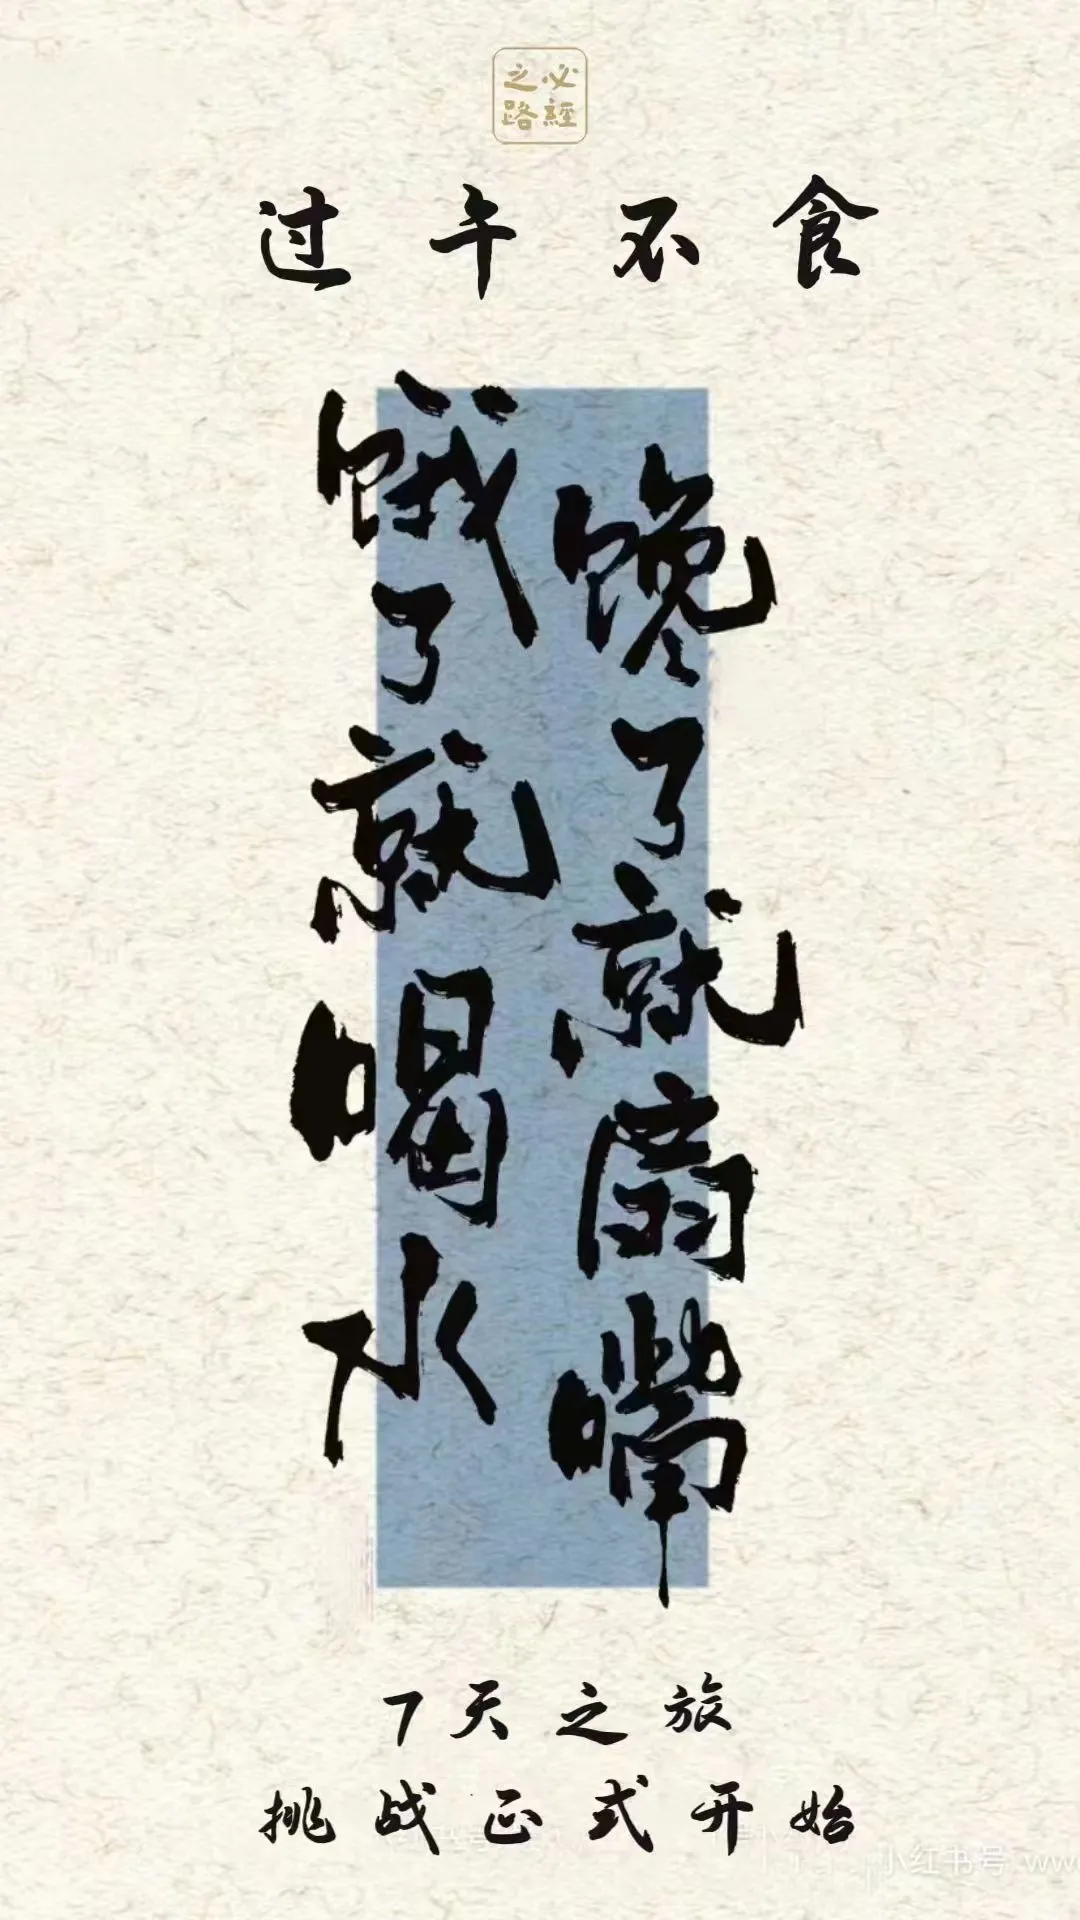 必經
之路
过午不食
馋了就扇嘴
饿了就喝水
7天之旅
挑战正式开始
小红书号